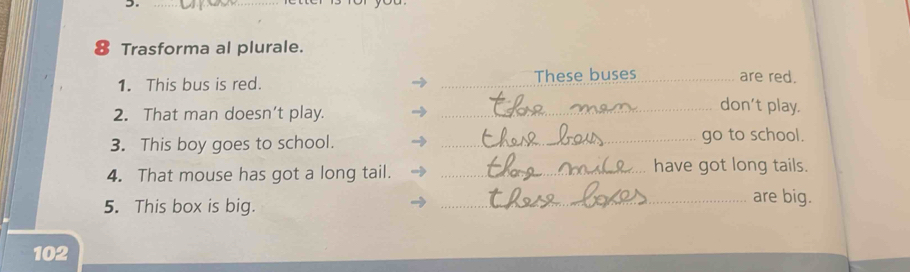 8 Trasforma al plurale.
1. This bus is red. → These buses are red.
2. That man doesn't play. → those men don't play.
3. This boy goes to school. → these boys go to school.
4. That mouse has got a long tail. → those mice have got long tails.
5. This box is big. → these boxes are big.
102